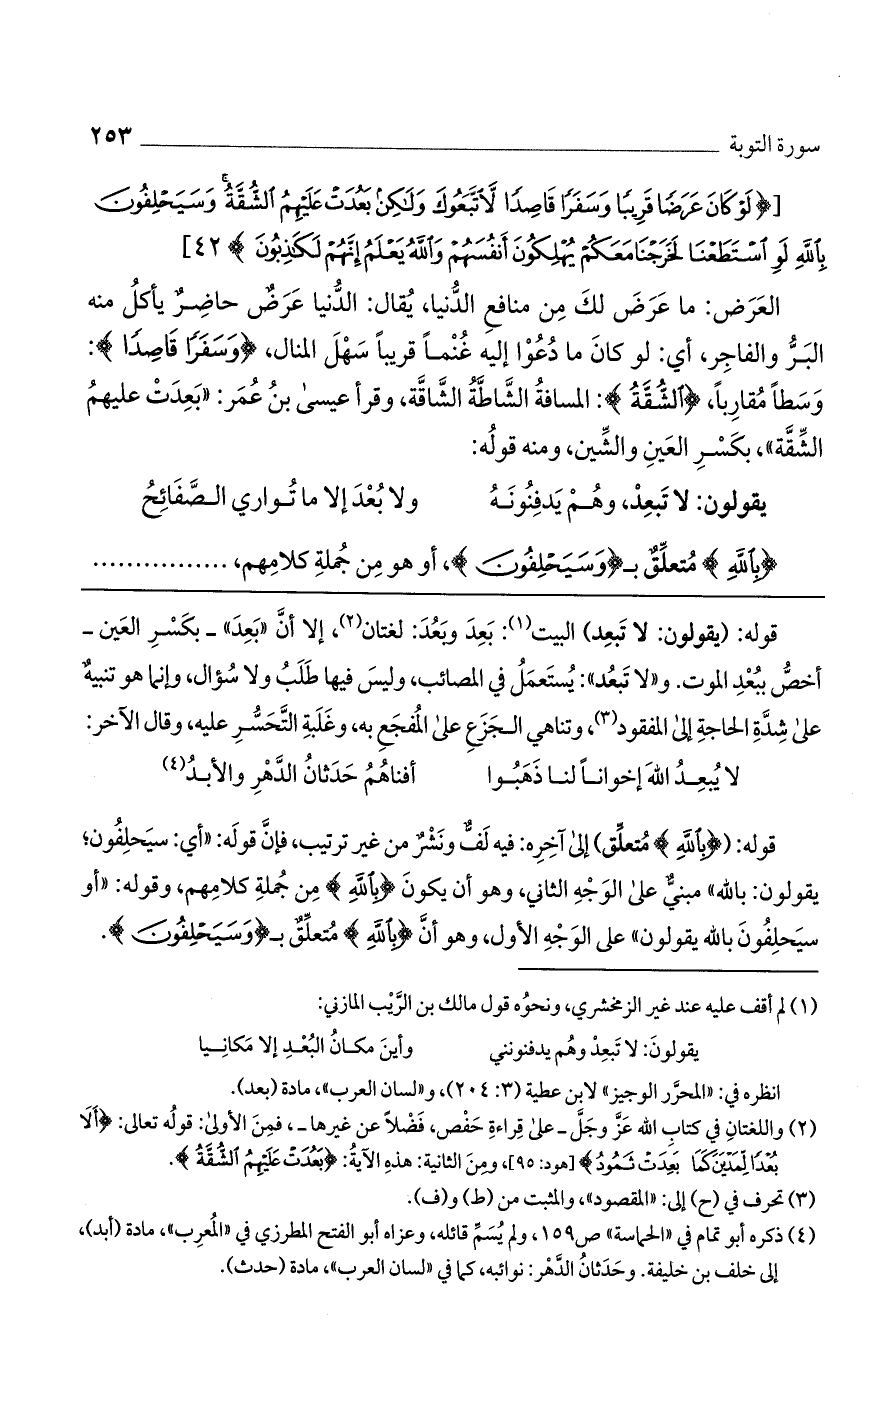 سورة التوبة ٢٥٣
[﴿لَوْ كَانَ عَرَضًا قَرِيبًا وَسَفَرًا قَاصِدًا لَّاتَّبَعُوكَ وَلَٰكِنۢ بَعُدَتْ عَلَيْهِمُ الشُّقَّةُ ۚ وَسَيَحْلِفُونَ
بِاللَّهِ لَوِ اسْتَطَعْنَا لَخَرَجْنَا مَعَكُمْ يُهْلِكُونَ أَنفُسَهُمْ وَاللَّهُ يَعْلَمُ إِنَّهُمْ لَكَاذِبُونَ﴾ ٤٢]
العَرَض: ما عَرَضَ لكَ مِن منافعِ الدُّنيا، يُقال: الدُّنيا عَرَضٌ حاضِرٌ يأكلُ منه
البَرُّ والفاجِر، أي: لو كانَ ما دُعُوْا إليه غُنْماً قريباً سَهْلَ المنال، ﴿وَسَفَرًا قَاصِدًا﴾:
وَسَطاً مُقارِباً، ﴿الشُّقَّةُ﴾: المسافةُ الشَّاطَّةُ الشَّاقَّة، وقرأ عيسىٰ بنُ عُمَر: «بَعِدَتْ عليهمُ
الشِّقَّة»، بكَسْرِ العَينِ والشِّين، ومنه قولُه:
يقولون: لا تَبعِدْ، وهُـمْ يَدفِنُونَـهُ ولا بُعْدَ إلا ما تُـواري الـصَّفَائِحُ
﴿بِاللَّهِ﴾ مُتعلِّقٌ بـ﴿وَسَيَحْلِفُونَ﴾، أو هو مِن جُملةِ كلامِهم، ................
قوله: (يقولون: لا تَبعِد) البيت(١): بَعِدَ وبَعُدَ: لغتان(٢)، إلا أنَّ «بَعِدَ» ـ بكَسْرِ العَين ـ
أخصُّ ببُعْدِ الموت. و«لا تَبعُد»: يُستَعمَلُ في المصائب، وليسَ فيها طَلَبٌ ولا سُؤال، وإنما هو تنبيهٌ
علىٰ شِدَّةِ الحاجةِ إلىٰ المفقود(٣)، وتناهي الـجَزَعِ علىٰ المُفجَعِ به، وغَلَبةِ التَّحَسُّرِ عليه، وقال الآخر:
لا يُبعِـدُ اللهَ إخوانـاً لنـا ذَهَبُـوا أفناهُمُ حَدَثانُ الدَّهْرِ والأبدُ(٤)
قوله: (﴿بِاللَّهِ﴾ مُتعلِّق) إلىٰ آخِرِه: فيه لَفٌّ ونَشْرٌ من غيرِ ترتيب، فإنَّ قولَه: «أي: سيَحلِفُون؛
يقولون: بالله» مبنيٌّ علىٰ الوَجْهِ الثاني، وهو أن يكونَ ﴿بِاللَّهِ﴾ مِن جُملةِ كلامِهم، وقوله: «أو
سيَحلِفُونَ بالله يقولون» علىٰ الوَجْهِ الأول، وهو أنَّ ﴿بِاللَّهِ﴾ مُتعلِّقٌ بـ﴿وَسَيَحْلِفُونَ﴾.
(١) لم أقف عليه عند غير الزمخشري، ونحوُه قول مالك بن الرَّيْب المازني:
يقولونَ: لا تَبعِدْ وهُم يدفنونني وأينَ مكـانُ البُعْـدِ إلا مَكانـيـا
انظره في: «المحرَّر الوجيز» لابن عطية (٣: ٢٠٤)، و«لسان العرب»، مادة (بعد).
(٢) واللغتانِ في كتابِ الله عَزَّ وجَلَّ ـ علىٰ قِراءةِ حَفْص، فَضْلاً عن غيرها ـ، فمِنَ الأولىٰ: قولُه تعالى: ﴿أَلَا
بُعْدًا لِّمَدْيَنَ كَمَا بَعِدَتْ ثَمُودُ﴾ [هود: ٩٥]، ومِنَ الثانية: هذهِ الآيةُ: ﴿بَعُدَتْ عَلَيْهِمُ الشُّقَّةُ﴾.
(٣) تحرف في (ح) إلى: «المقصود»، والمثبت من (ط) و(ف).
(٤) ذكره أبو تمام في «الحماسة» ص١٥٩، ولم يُسَمِّ قائله، وعزاه أبو الفتح المطرزي في «المُعرِب»، مادة (أبد)،
إلى خلف بن خليفة. وحَدَثانُ الدَّهْر: نوائبه، كما في «لسان العرب»، مادة (حدث).